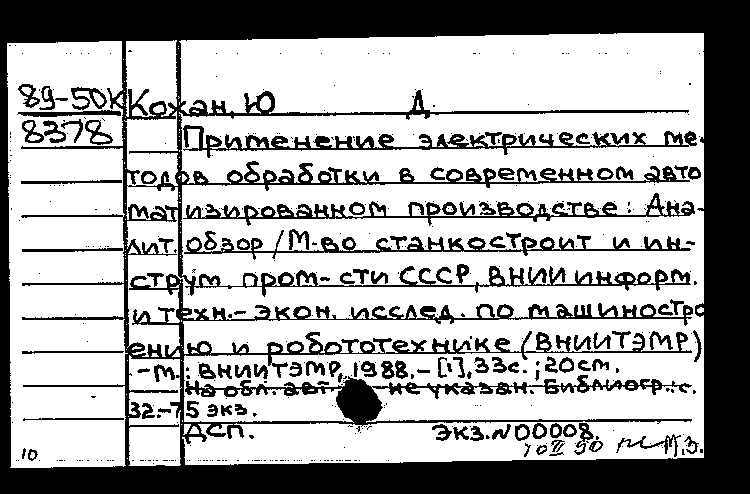 89-50К Кохан, Ю Д.
8378 Применение электрических ме-
тодов обработки в современном авто
матизированном производстве: Ана-
лит. обзор / М-во станкостроит и ин-
струм. пром-сти СССР, ВНИИ информ.
и техн.-экон. исслед. по машиностро
ению и робототехнике (ВНИИТЭМР)
-М.: ВНИИТЭМР, 1988.-[1],33с.; 20см.
На обл. авт. не указан. Библиогр.: с.
32.-75 экз.
ДСП. ЭКЗ.N00008.
10